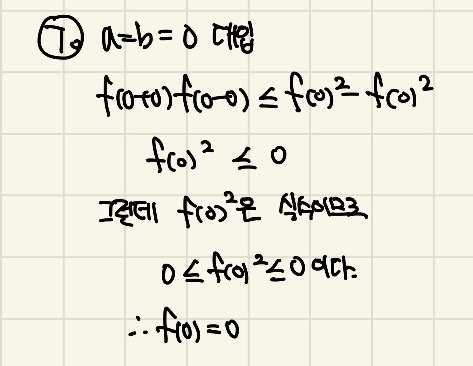 ㄱ. a=b=0 대입
f(0+0)f(0-0) ≤ f(0)² - f(0)²
f(0)² ≤ 0
그런데 f(0)²은 실수이므로
0 ≤ f(0)² ≤ 0 이다.
∴ f(0) = 0